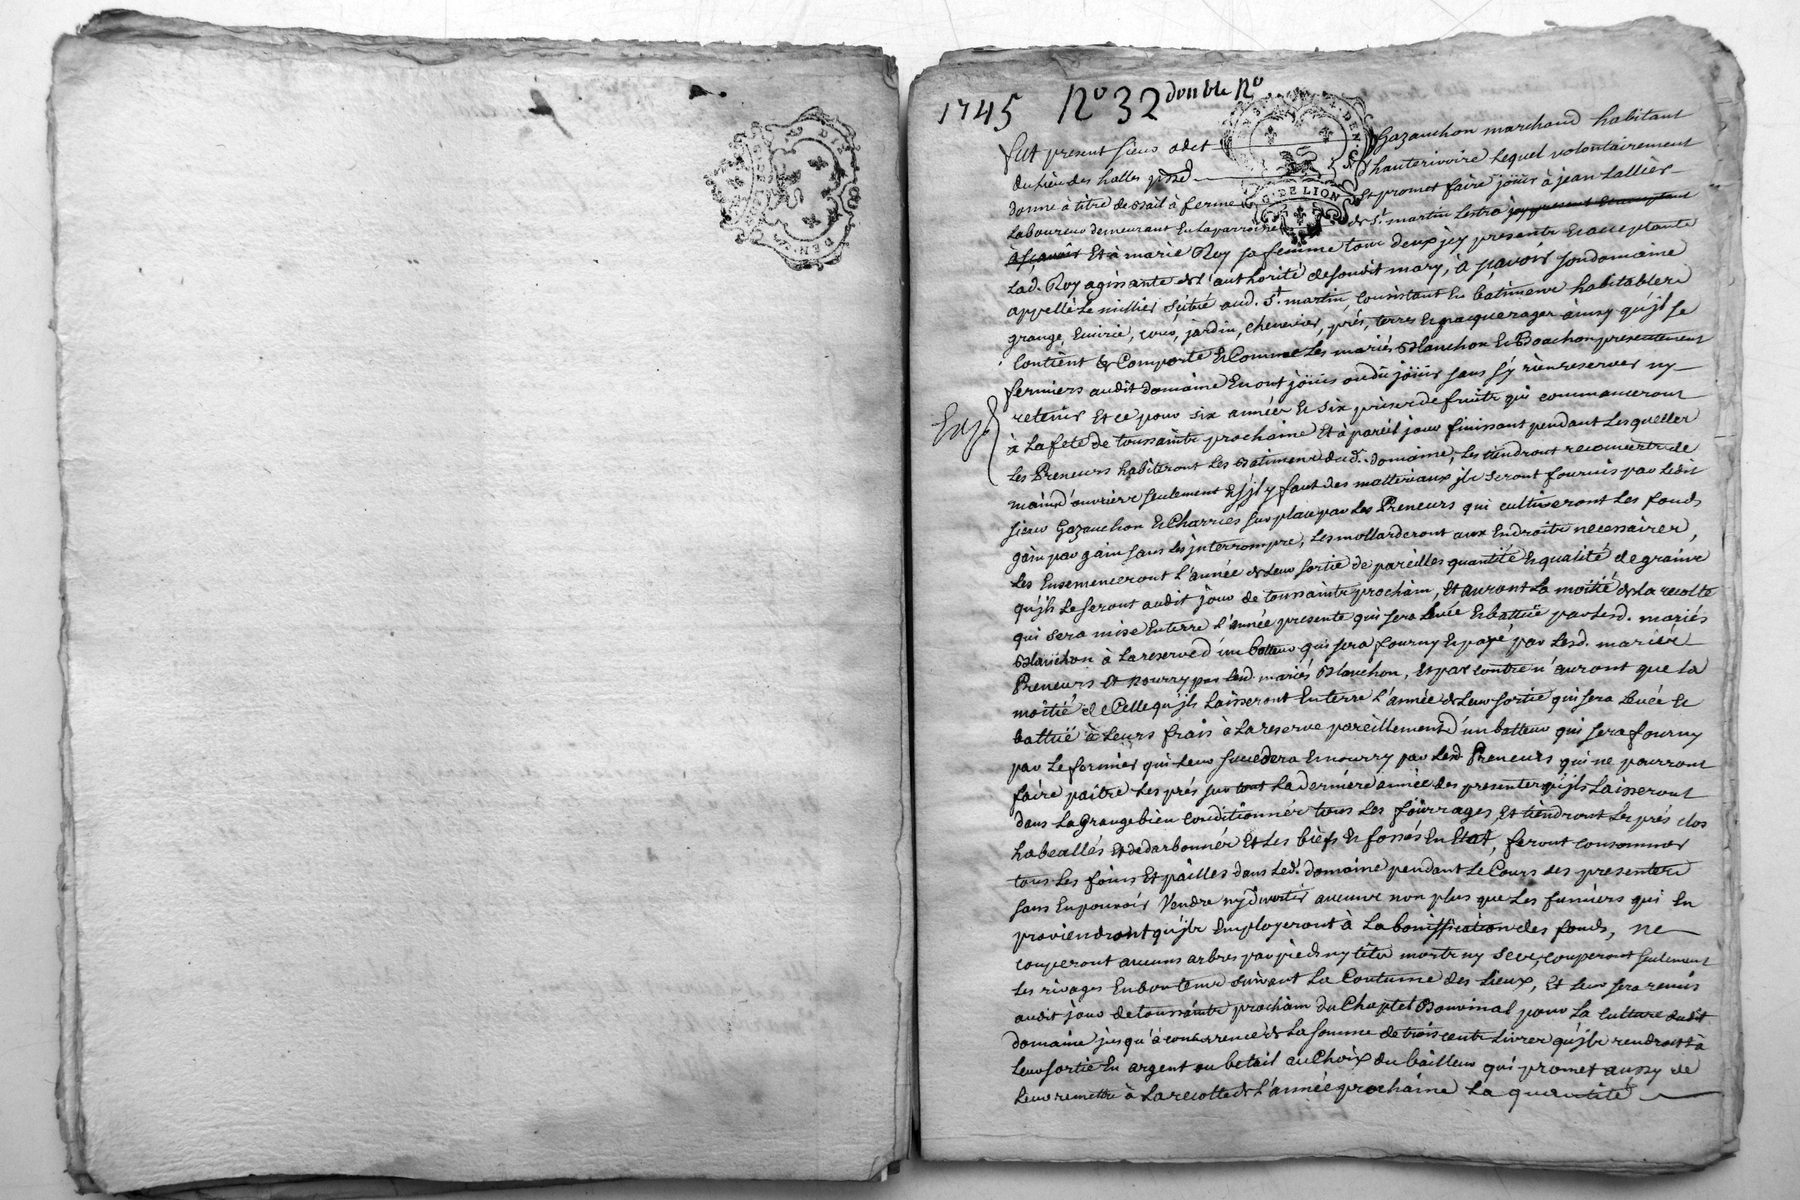 1745 No 32 double No
G. DE LION
Fut present sieur adet Gazanchon marchand habitant
du lieu des halles psse d'hauterivoire Lequel volontairement
donne à titre de Bail à ferme Et promet faire jöüir à jean Lallier
Laboureur demeurant En La parroisse de St. martin Lestra jcy present Et acceptant
à sçavoir Et à marie Roy sa femme tous deux jcy presents Et acceptants
Lad. Roy agissante de L'authorité de soudit mary, à sçavoir son domaine
appellé Le millier scitué aud. St. martin, Consistant En batiments habitables
grange, Ecurie, cour, jardin, cheneviere, prés, terres Et pacquerages ainsy qu'jl se
Contient & Comporte Et Comme Les mariés Blanchon Et Boachon presentement
fermiers dudit domaine En ont jöüis ou dû jöüir sans s'y rien reserver ny
retenir Et ce pour six années Et six prises de fruits qui commanceront
à La fete de toussaints prochaine Et à pareil jour finissant pendant Lesquelles
Les Preneurs habiteront Les Batiments dud. domaine, Les tiendront recouverts de
main d'ouvriers seulement Et s'jl y faut des matteriaux jls seront fournis par Ledit
sieur Gazanchon Et Charriés sur place par Les Preneurs qui cultiveront Les fonds
gain par gain sans Les jnterrompre, Les mollarderont aux Endroits necessaires,
Les Ensemenceront L'année de Leur sortie de pareilles quantité Et qualité de grains
qu'jls Le seront audit jour de toussaints prochain, Et auront La moitié de La recolte
qui sera mise En terre L'année presente qui sera Levée Et battüe par Lesd. mariés
Blanchon à La reserve d'un batteur qui sera fourny Et payé par Lesd. mariés
Preneurs Et nourry par Lesd. mariés Blanchon, Et par contre n'auront que La
moitié de Celle qu'jls Laisseront En terre L'année de Leur sortie qui sera Levée Et
battüe à Leurs frais à La reserve pareillement d'un batteur qui sera fourny
par Le fermier qui Leur succedera Et nourry par Lesd. Preneurs qui ne pourront
faire paitre Les prés sur tout La derniére année des presentes qu'jls Laisseront
dans La grange bien conditionnés tous Les föürrages, Et tiendront Les prés clos
habeallés Et dedarbonnés Et Les biefs Et fossés En Etat, feront consommer
tous Les foins Et pailles dans Led. domaine pendant Le Cours des presentes
sans En pouvoir Vendre ny divertir aucune non plus que Les fumiers qui En
proviendront qu'jls Employeront à La bonissfication des fonds, ne
couperont aucuns arbres par pieds ny têtes morts ny secs, couperont seulement
Les rivages En bon tems suivant La Coutume des Lieux, Et Leur sera remis
audit jour de toussaints prochain du Cheptel Bouvinal pour La culture dudit
domaine jusqu'à concurrence de La somme de trois cents Livres qu'jls rendront à
Leur sortie En argent ou betail au choix du bailleur qui promet aussy de
Leur remettre à La recolte de L'année prochaine La quantité